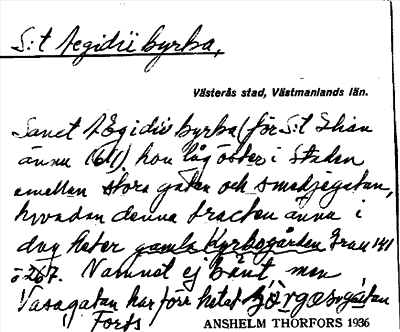 S:t Aegidii kyrka,
Västerås stad, Västmanlands län.
Sanct Ægidii kyrka (för S:t Ilian
ännu (61) hon låg öster i Staden
emellan stora gatan och smedjegatan,
hvadan denna tracten ännu i
dag heter gamla Kyrkogården Grau 141
o 267. Namnet ej känt men
Vasagatan har förr hetat
Forts
ANSHELM THORFORS 1936